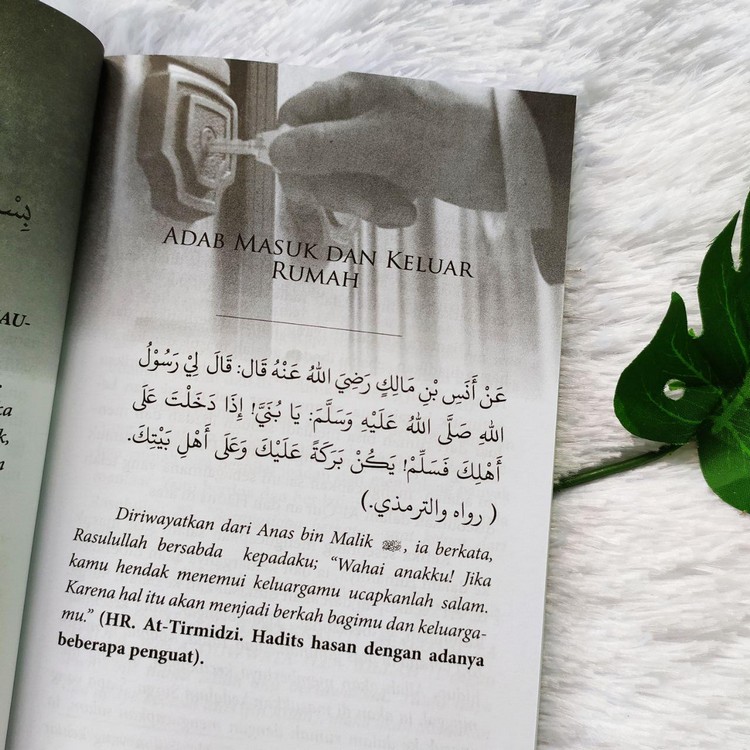 بِسْـ
AU-
ADAB MASUK DAN KELUAR
RUMAH
عَنْ أَنَسِ بْنِ مَالِكٍ رَضِيَ اللهُ عَنْهُ قَالَ: قَالَ لِيْ رَسُوْلُ
اللهِ صَلَّى اللهُ عَلَيْهِ وَسَلَّمَ: يَا بُنَيَّ! إِذَا دَخَلْتَ عَلَى
أَهْلِكَ فَسَلِّمْ! يَكُنْ بَرَكَةً عَلَيْكَ وَعَلَى أَهْلِ بَيْتِكَ.
( رواه والترمذي.)
Diriwayatkan dari Anas bin Malik , ia berkata,
Rasulullah bersabda kepadaku; “Wahai anakku! Jika
kamu hendak menemui keluargamu ucapkanlah salam.
Karena hal itu akan menjadi berkah bagimu dan keluarga-
mu.” (HR. At-Tirmidzi. Hadits hasan dengan adanya
beberapa penguat).